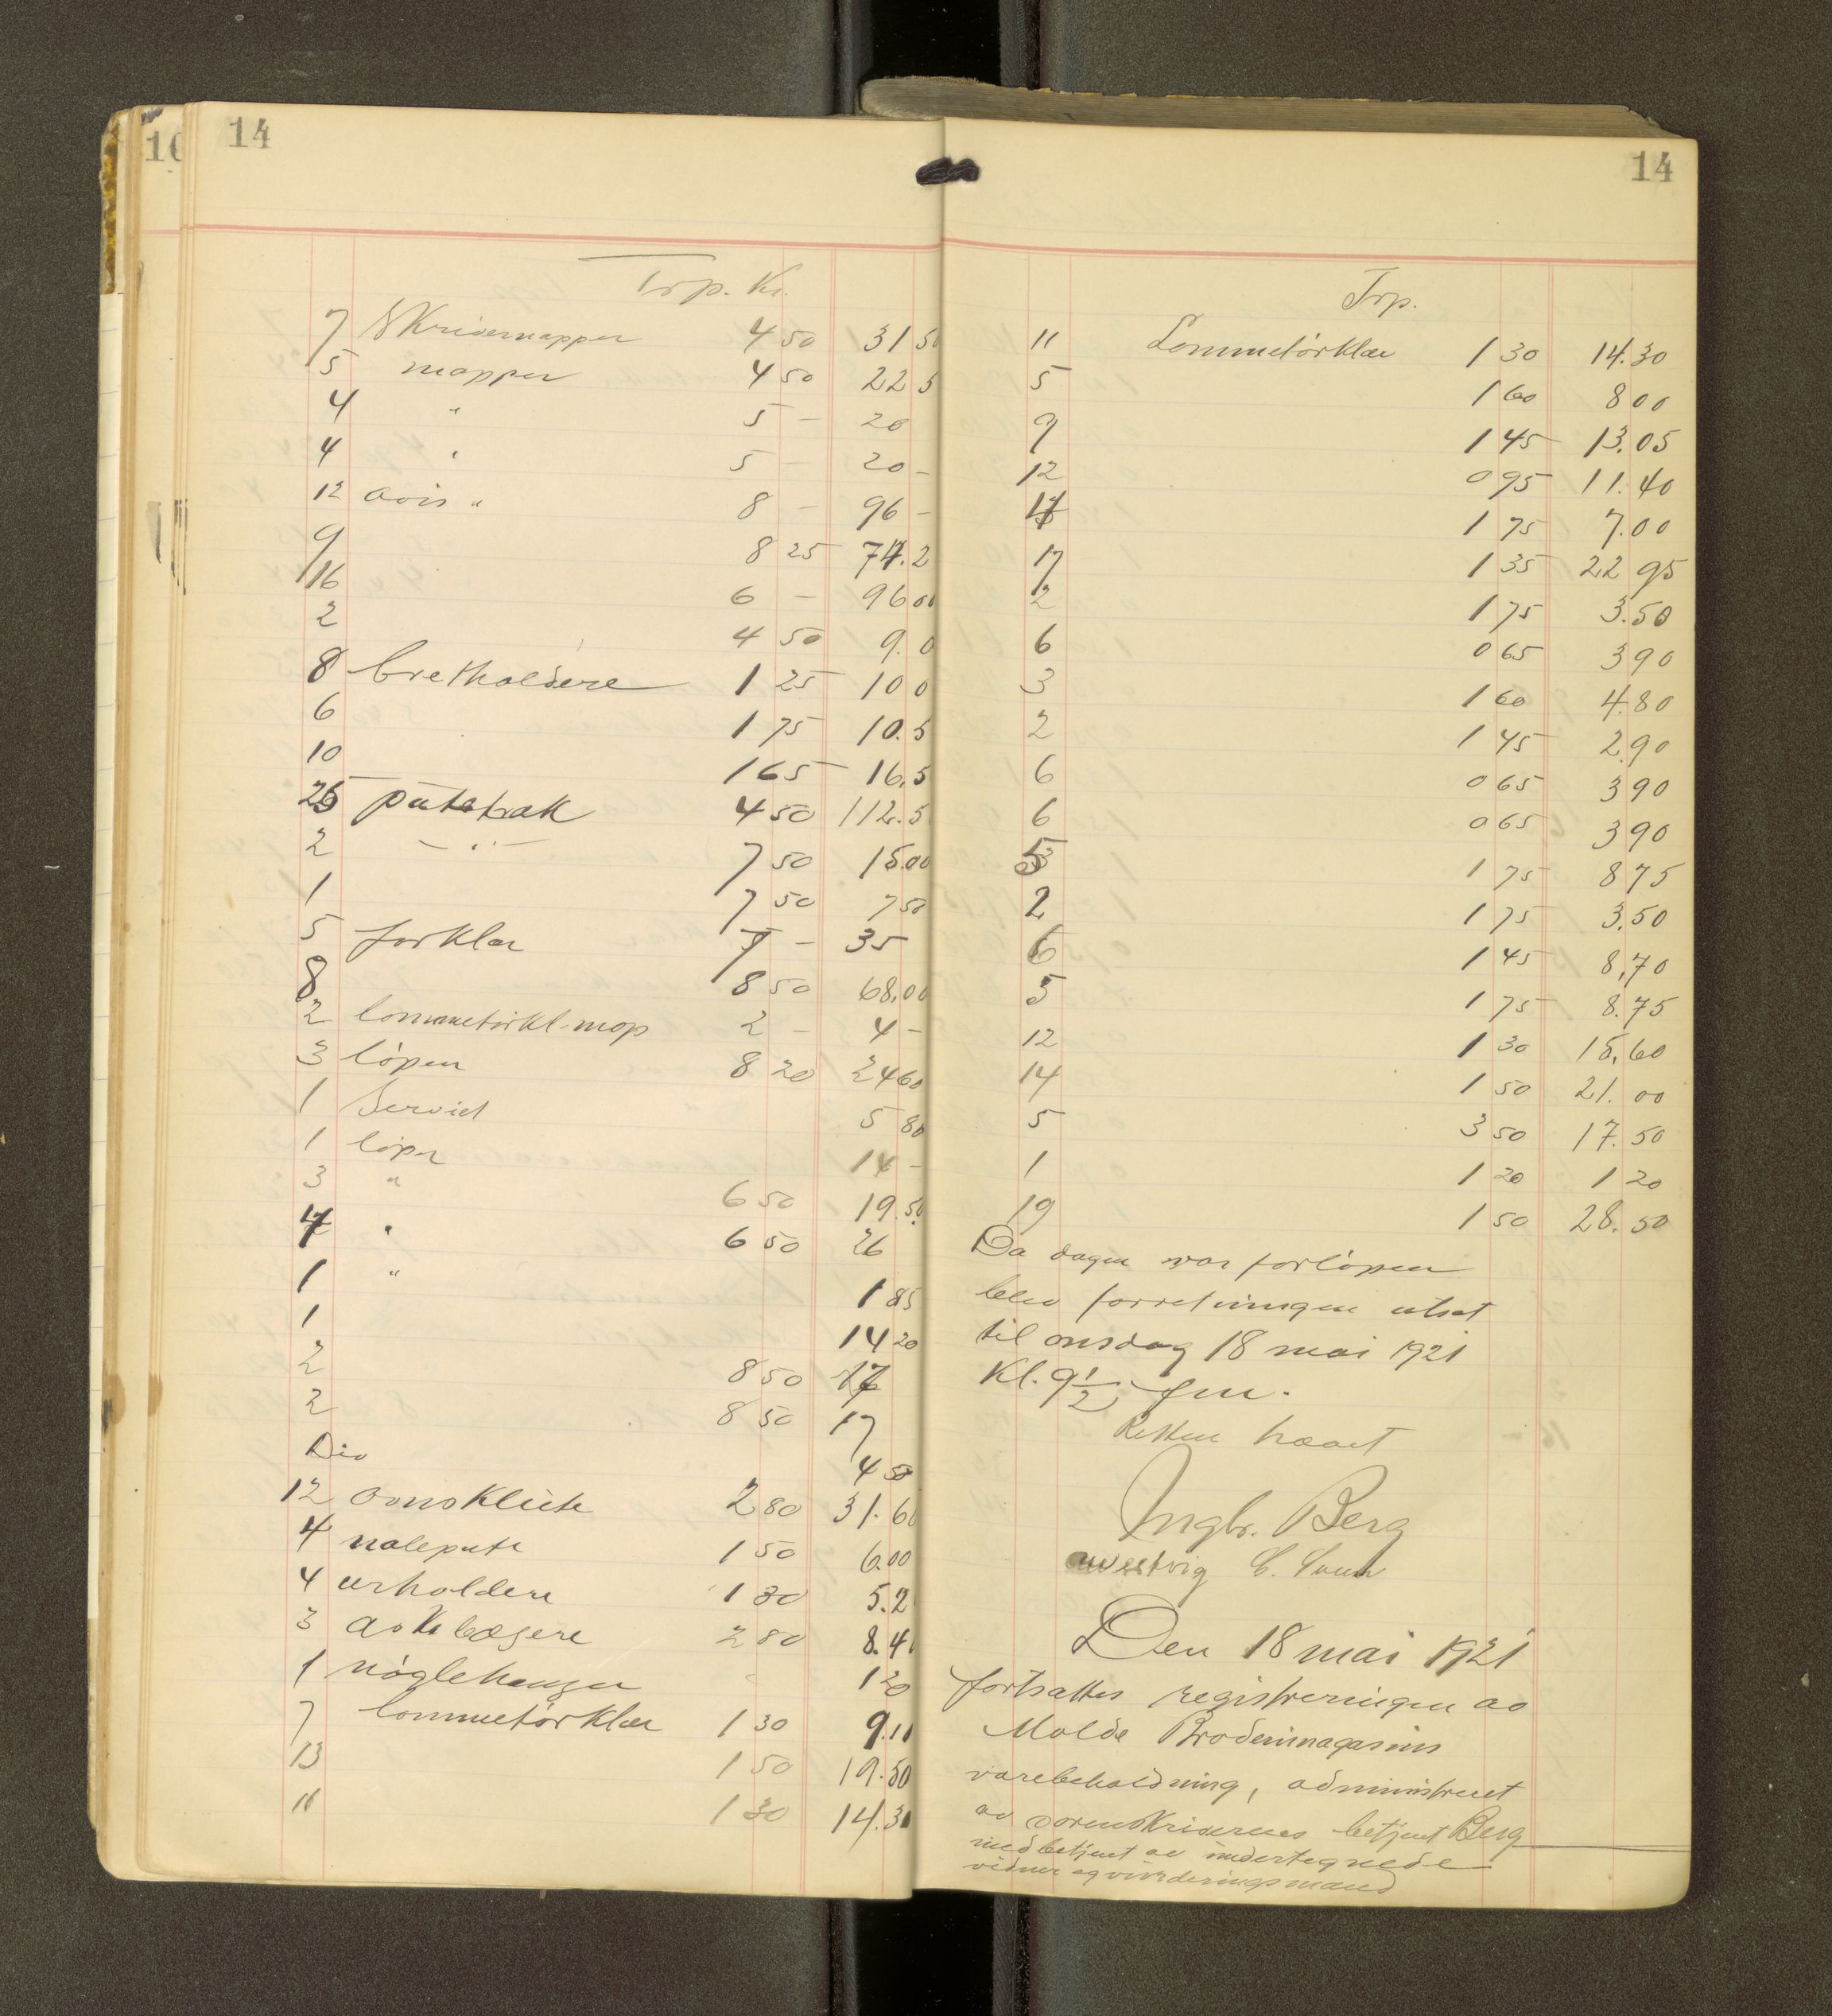 10
14
Trp. Kr.
7 Skrivemapper 4 50 31 50
5 mapper 4 50 22 5
4 " 5 - 20
4 " 5 - 20 -
12 avis " 8 - 96 -
9 8 25 74.2
16 6 - 96 00
2 4 50 9.0
8 bretholdere 1 25 10 0
6 1 75 10.5
10 1 65 16.5
25 putetræk 4 50 112.5
2 - " - 7 50 15.00
1 7 50 7 50
5 forklær 7 - 35
8 8 50 68.00
2 lommetørkl. map 2 - 4 -
3 løper 8 20 24 60
1 Serviet 5 80
1 løper 14 -
3 " 6 50 19.50
4 " 6 50 26
1 " 1 85
1 14 20
2 8 50 17
2 8 50 17
Div 4 50
12 ovnsklute 2 80 31.60
4 nålepute 1 50 6.00
4 urholdere 1 30 5.2
3 askebægere 2 80 8.4
1 nøglehenger 1 20
7 lommetørklær 1 30 9.10
13 1 50 19.50
11 1 30 14.30
14
Trp.
11 Lommetørklær 1 30 14.30
5 1 60 8 00
9 1 45 13.05
12 0 95 11.40
4 1 75 7.00
17 1 35 22 95
2 1 75 3.50
6 0 65 3 90
3 1 60 4.80
2 1 45 2.90
6 0 65 3 90
6 0 65 3 90
5 1 75 8 75
2 1 75 3.50
6 1 45 8,70
5 1 75 8.75
12 1 30 15,60
14 1 50 21.00
5 3 50 17.50
1 1 20 1 20
19 1 50 28.50
Da dagen var forløpen
blev forretningen utsat
til onsdag 18 mai 1921
Kl. 9 1/2 fm.
Retten hævet
Ingbr. Berg
C.
Den 18 mai 1921
fortsattes registreringen av
Molde Broderimagasins
varebeholdning, administreret
av sorenskriverens betjent Berg
med betjent av undertegnede
vidner og vurderingsmænd